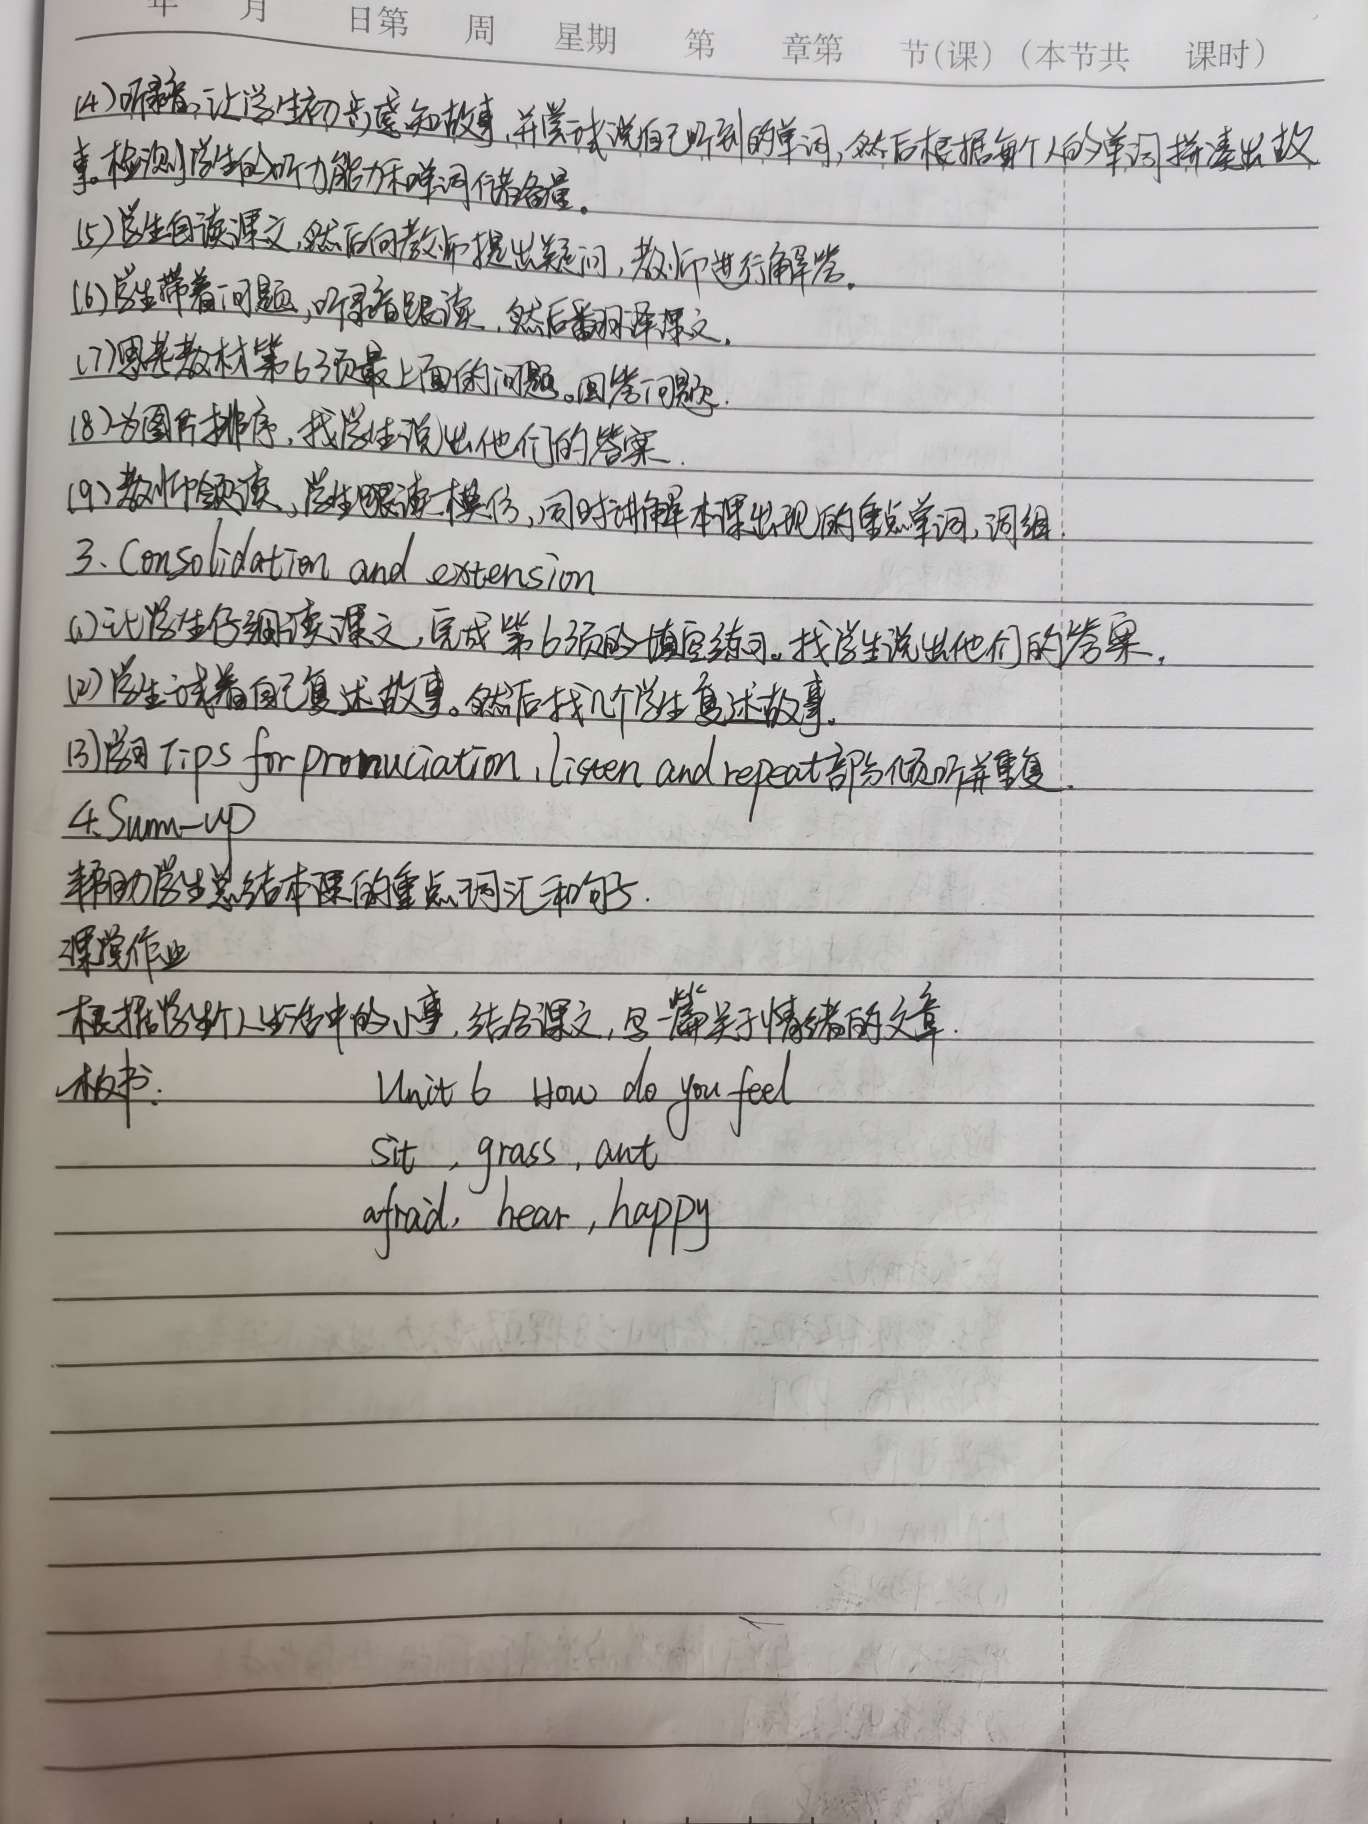 年 月 日第 周 星期 第 章第 节(课)(本节共 课时)
(4)听录音,让学生初步感知故事,并尝试说自己听到的单词,然后根据每个人的单词拼凑出故
事。检测学生的听力能力和单词储备量。
(5)学生自读课文,然后向教师提出疑问,教师进行解答。
(6)学生带着问题,听录音跟读,然后翻译课文。
(7)思考教材第63页最上面的问题。回答问题.
(8)为图片排序,找学生说出他们的答案.
(9)教师领读,学生跟读模仿,同时讲解本课出现的重点单词,词组.
3. Consolidation and extension
(1)让学生仔细读课文,完成第63页的填空练习。找学生说出他们的答案.
(2)学生试着自己复述故事。然后找几个学生复述故事。
(3)学习Tips for pronuciation, listen and repeat部分倾听并重复.
4. Sum-up
帮助学生总结本课的重点词汇和句子.
课堂作业
根据学生个人生活中的小事,结合课文,写一篇关于情绪的文章.
板书: Unit 6 How do you feel
sit , grass , ant
afraid, hear , happy